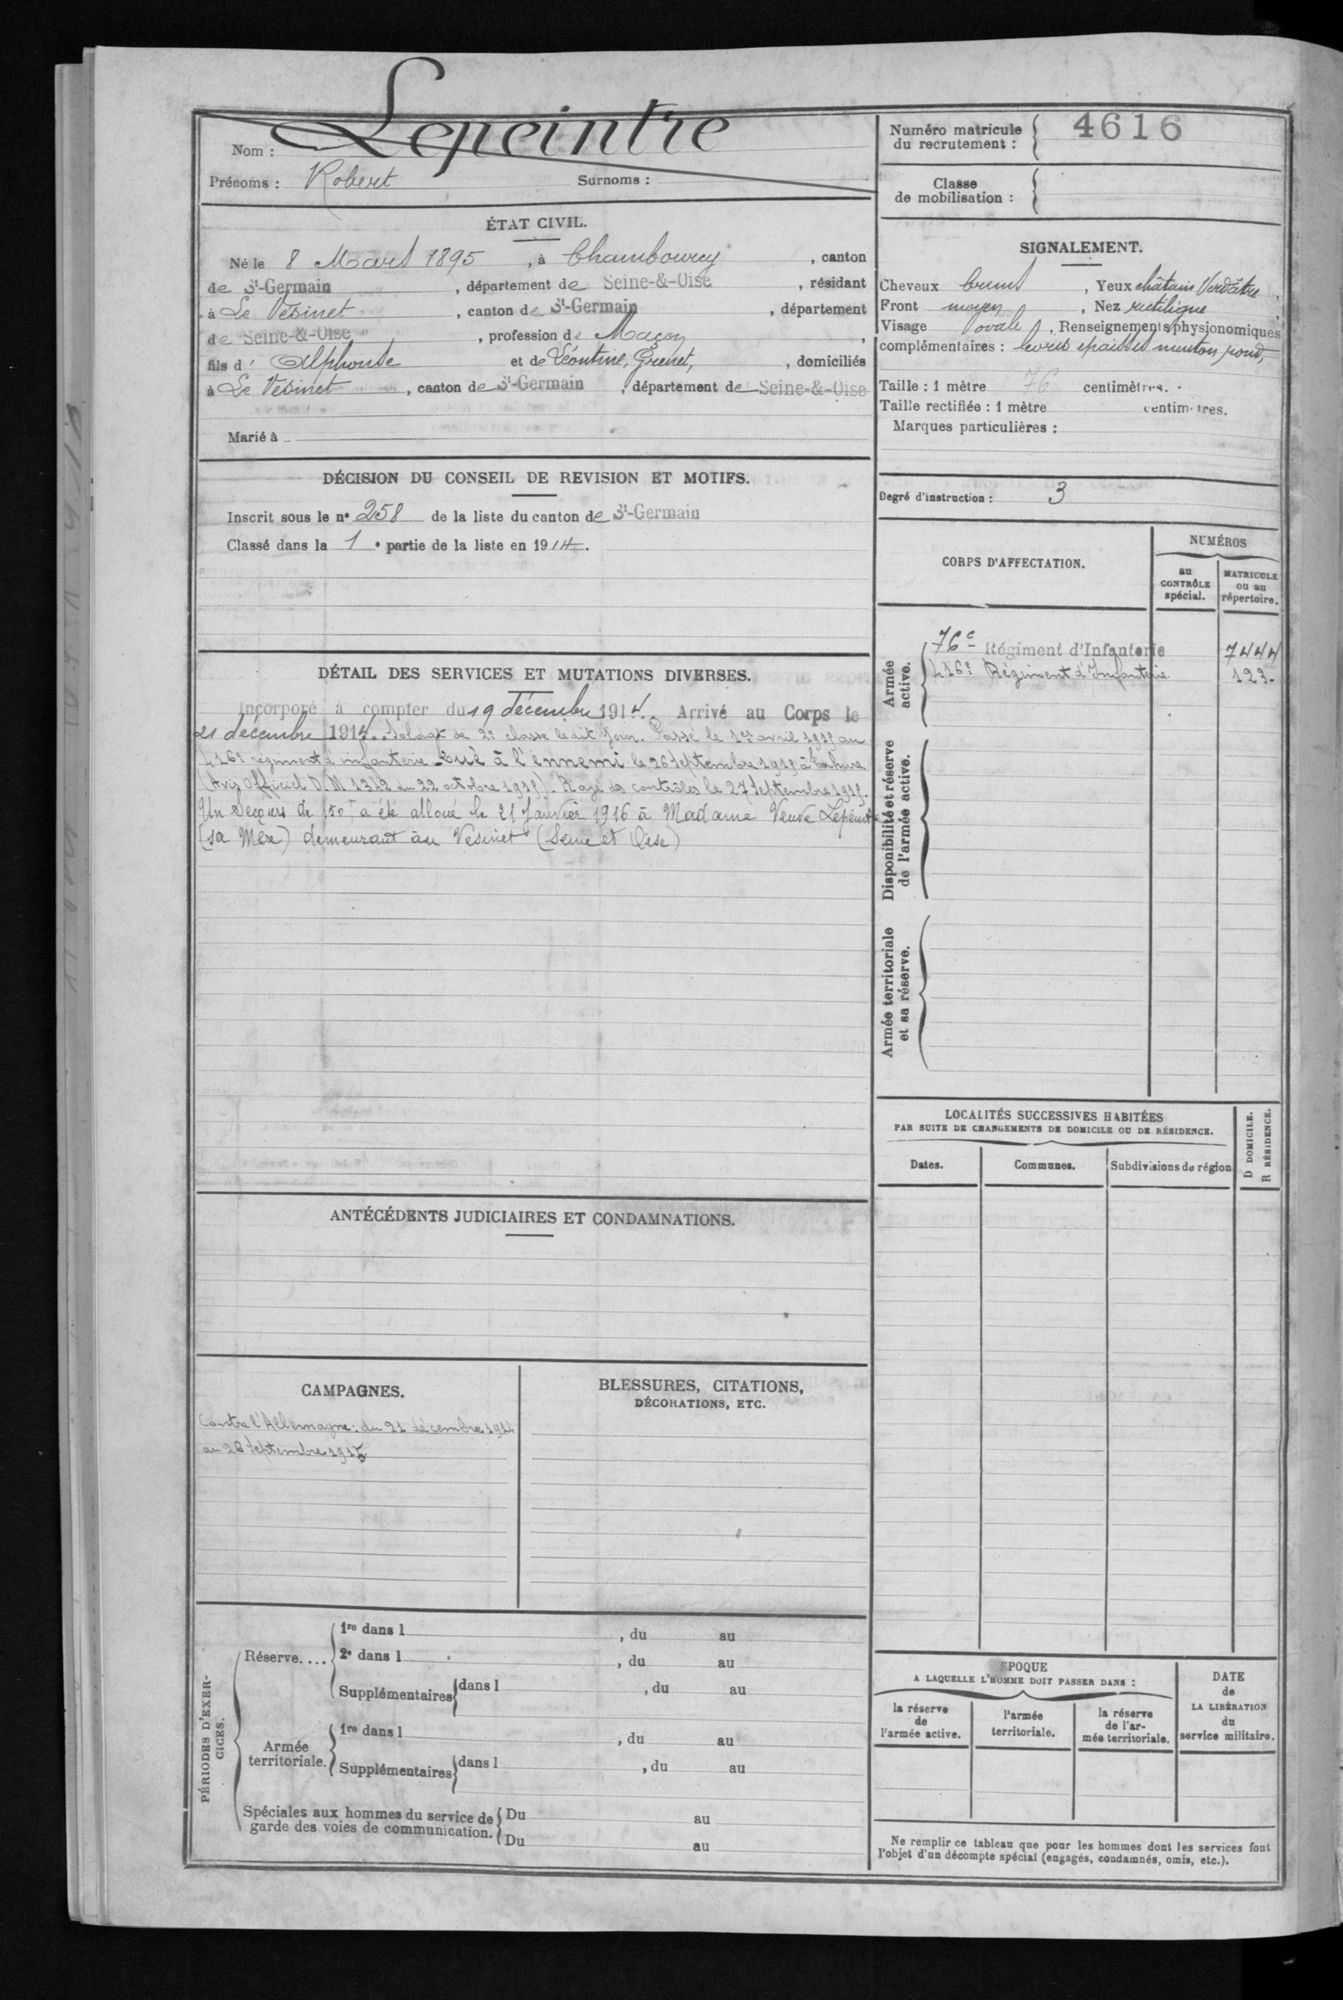 Nom : Lepeintre
Prénoms : Robert Surnoms :
ÉTAT CIVIL.
Né le 8 Mars 1895, à Chambourcy, canton
de St-Germain, département de Seine-&-Oise, résidant
à Le Vesinet, canton de St-Germain, département
de Seine-&-Oise, profession de Maçon,
fils d' Alphonse et de Léontine, Grenet, domiciliés
à Le Vesinet, canton de St-Germain, département de Seine-&-Oise
Marié à
DÉCISION DU CONSEIL DE REVISION ET MOTIFS.
Inscrit sous le n° 258 de la liste du canton de St-Germain
Classé dans la 1e partie de la liste en 1914.
DÉTAIL DES SERVICES ET MUTATIONS DIVERSES.
Incorporé à compter du 19 Décembre 1914. Arrivé au Corps le
21 décembre 1914. Soldat de 2e classe ledit jour. Passé le 1er avril 1915 au
416e régiment d'infanterie. Tué à l'ennemi le 26 Septembre 1915 à Tahure
(Avis Officiel D M 1312 du 22 octobre 1915). Rayé des contrôles le 27 Septembre 1915.
Un Secours de 150f a été alloué le 21 Janvier 1916 à Madame Veuve Lepeintre
(sa Mère) demeurant au Vesinet (Seine et Oise)
ANTÉCÉDENTS JUDICIAIRES ET CONDAMNATIONS.
CAMPAGNES.
Contre l'Allemagne : du 21 décembre 1914
au 26 Septembre 1915
BLESSURES, CITATIONS,
DÉCORATIONS, ETC.
PÉRIODES D'EXER-
CICES.
Réserve....
1re dans l , du au
2e dans l , du au
Supplémentaires dans l , du au
Armée
territoriale.
1re dans l , du au
Supplémentaires dans l , du au
Spéciales aux hommes du service de
garde des voies de communication.
Du au
Du au
Numéro matricule
du recrutement : 4616
Classe
de mobilisation :
SIGNALEMENT.
Cheveux bruns, Yeux châtain Verdâtre,
Front moyen, Nez rectiligne
Visage ovale, Renseignements physionomiques
complémentaires : lèvres epaisses menton rond,
Taille : 1 mètre 76 centimètres.
Taille rectifiée : 1 mètre centimètres.
Marques particulières :
Degré d'instruction : 3
CORPS D'AFFECTATION.
NUMÉROS
au
CONTRÔLE
spécial.
MATRICULE
ou au
répertoire.
Armée
active.
76e Régiment d'Infanterie 7444
416e Régiment d'Infanterie 123.
Disponibilité et réserve
de l'armée active.
Armée territoriale
et sa réserve.
LOCALITÉS SUCCESSIVES HABITÉES
PAR SUITE DE CHANGEMENTS DE DOMICILE OU DE RÉSIDENCE.
D DOMICILE.
R RÉSIDENCE.
Dates. Communes. Subdivisions de région
ÉPOQUE
A LAQUELLE L'HOMME DOIT PASSER DANS :
la réserve
de
l'armée active.
l'armée
territoriale.
la réserve
de l'ar-
mée territoriale.
DATE
de
LA LIBÉRATION
du
service militaire.
Ne remplir ce tableau que pour les hommes dont les services font
l'objet d'un décompte spécial (engagés, condamnés, omis, etc.).